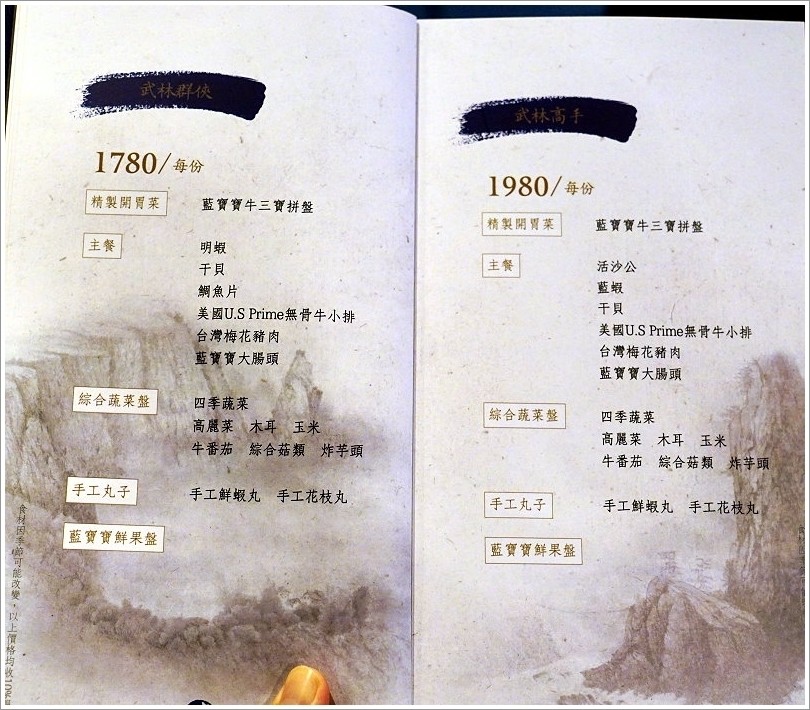 武林群俠
1780/每份
精製開胃菜
藍寶寶牛三寶拼盤
主餐
明蝦
干貝
鯛魚片
美國U.S Prime無骨牛小排
台灣梅花豬肉
藍寶寶大腸頭
綜合蔬菜盤
四季蔬菜
高麗菜 木耳 玉米
牛番茄 綜合菇類 炸芋頭
手工丸子
手工鮮蝦丸 手工花枝丸
藍寶寶鮮果盤
食材因季節可能改變，以上價格均收10%
武林高手
1980/每份
精製開胃菜
藍寶寶牛三寶拼盤
主餐
活沙公
藍蝦
干貝
美國U.S Prime無骨牛小排
台灣梅花豬肉
藍寶寶大腸頭
綜合蔬菜盤
四季蔬菜
高麗菜 木耳 玉米
牛番茄 綜合菇類 炸芋頭
手工丸子
手工鮮蝦丸 手工花枝丸
藍寶寶鮮果盤